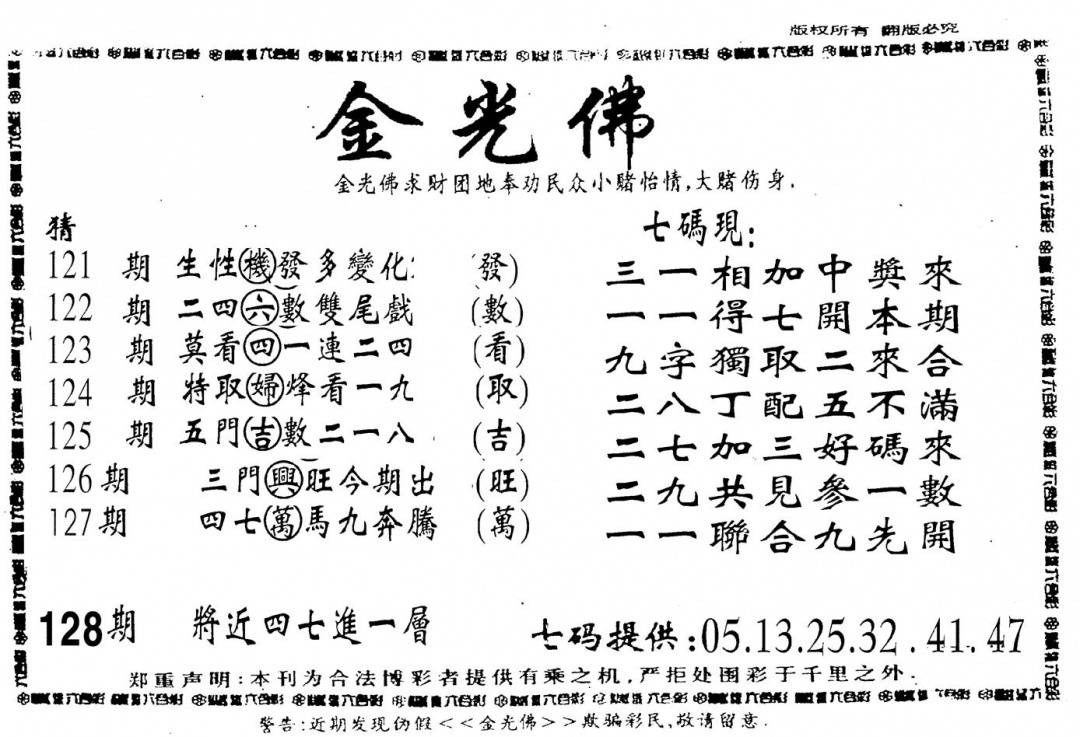 版权所有 翻版必究
金光佛
金光佛求财团地奉劝民众小赌怡情,大赌伤身.
猜
121 期 生性機發多變化 (發)
122 期 二四六數雙尾戲 (數)
123 期 莫看四一連二四 (看)
124 期 特取婦烽看一九 (取)
125 期 五門吉數二一八 (吉)
126期 三門興旺今期出 (旺)
127期 四七萬馬九奔騰 (萬)
七碼現:
三一相加中獎來
一一得七開本期
九字獨取二來合
二八丁配五不滿
二七加三好碼來
二九共見參一數
一一聯合九先開
128期 將近四七進一層
七码提供:05.13.25.32.41.47
郑重声明:本刊为合法博彩者提供有乘之机,严拒处围彩于千里之外.
警告:近期发现伪假<<金光佛>>欺骗彩民,敬请留意.